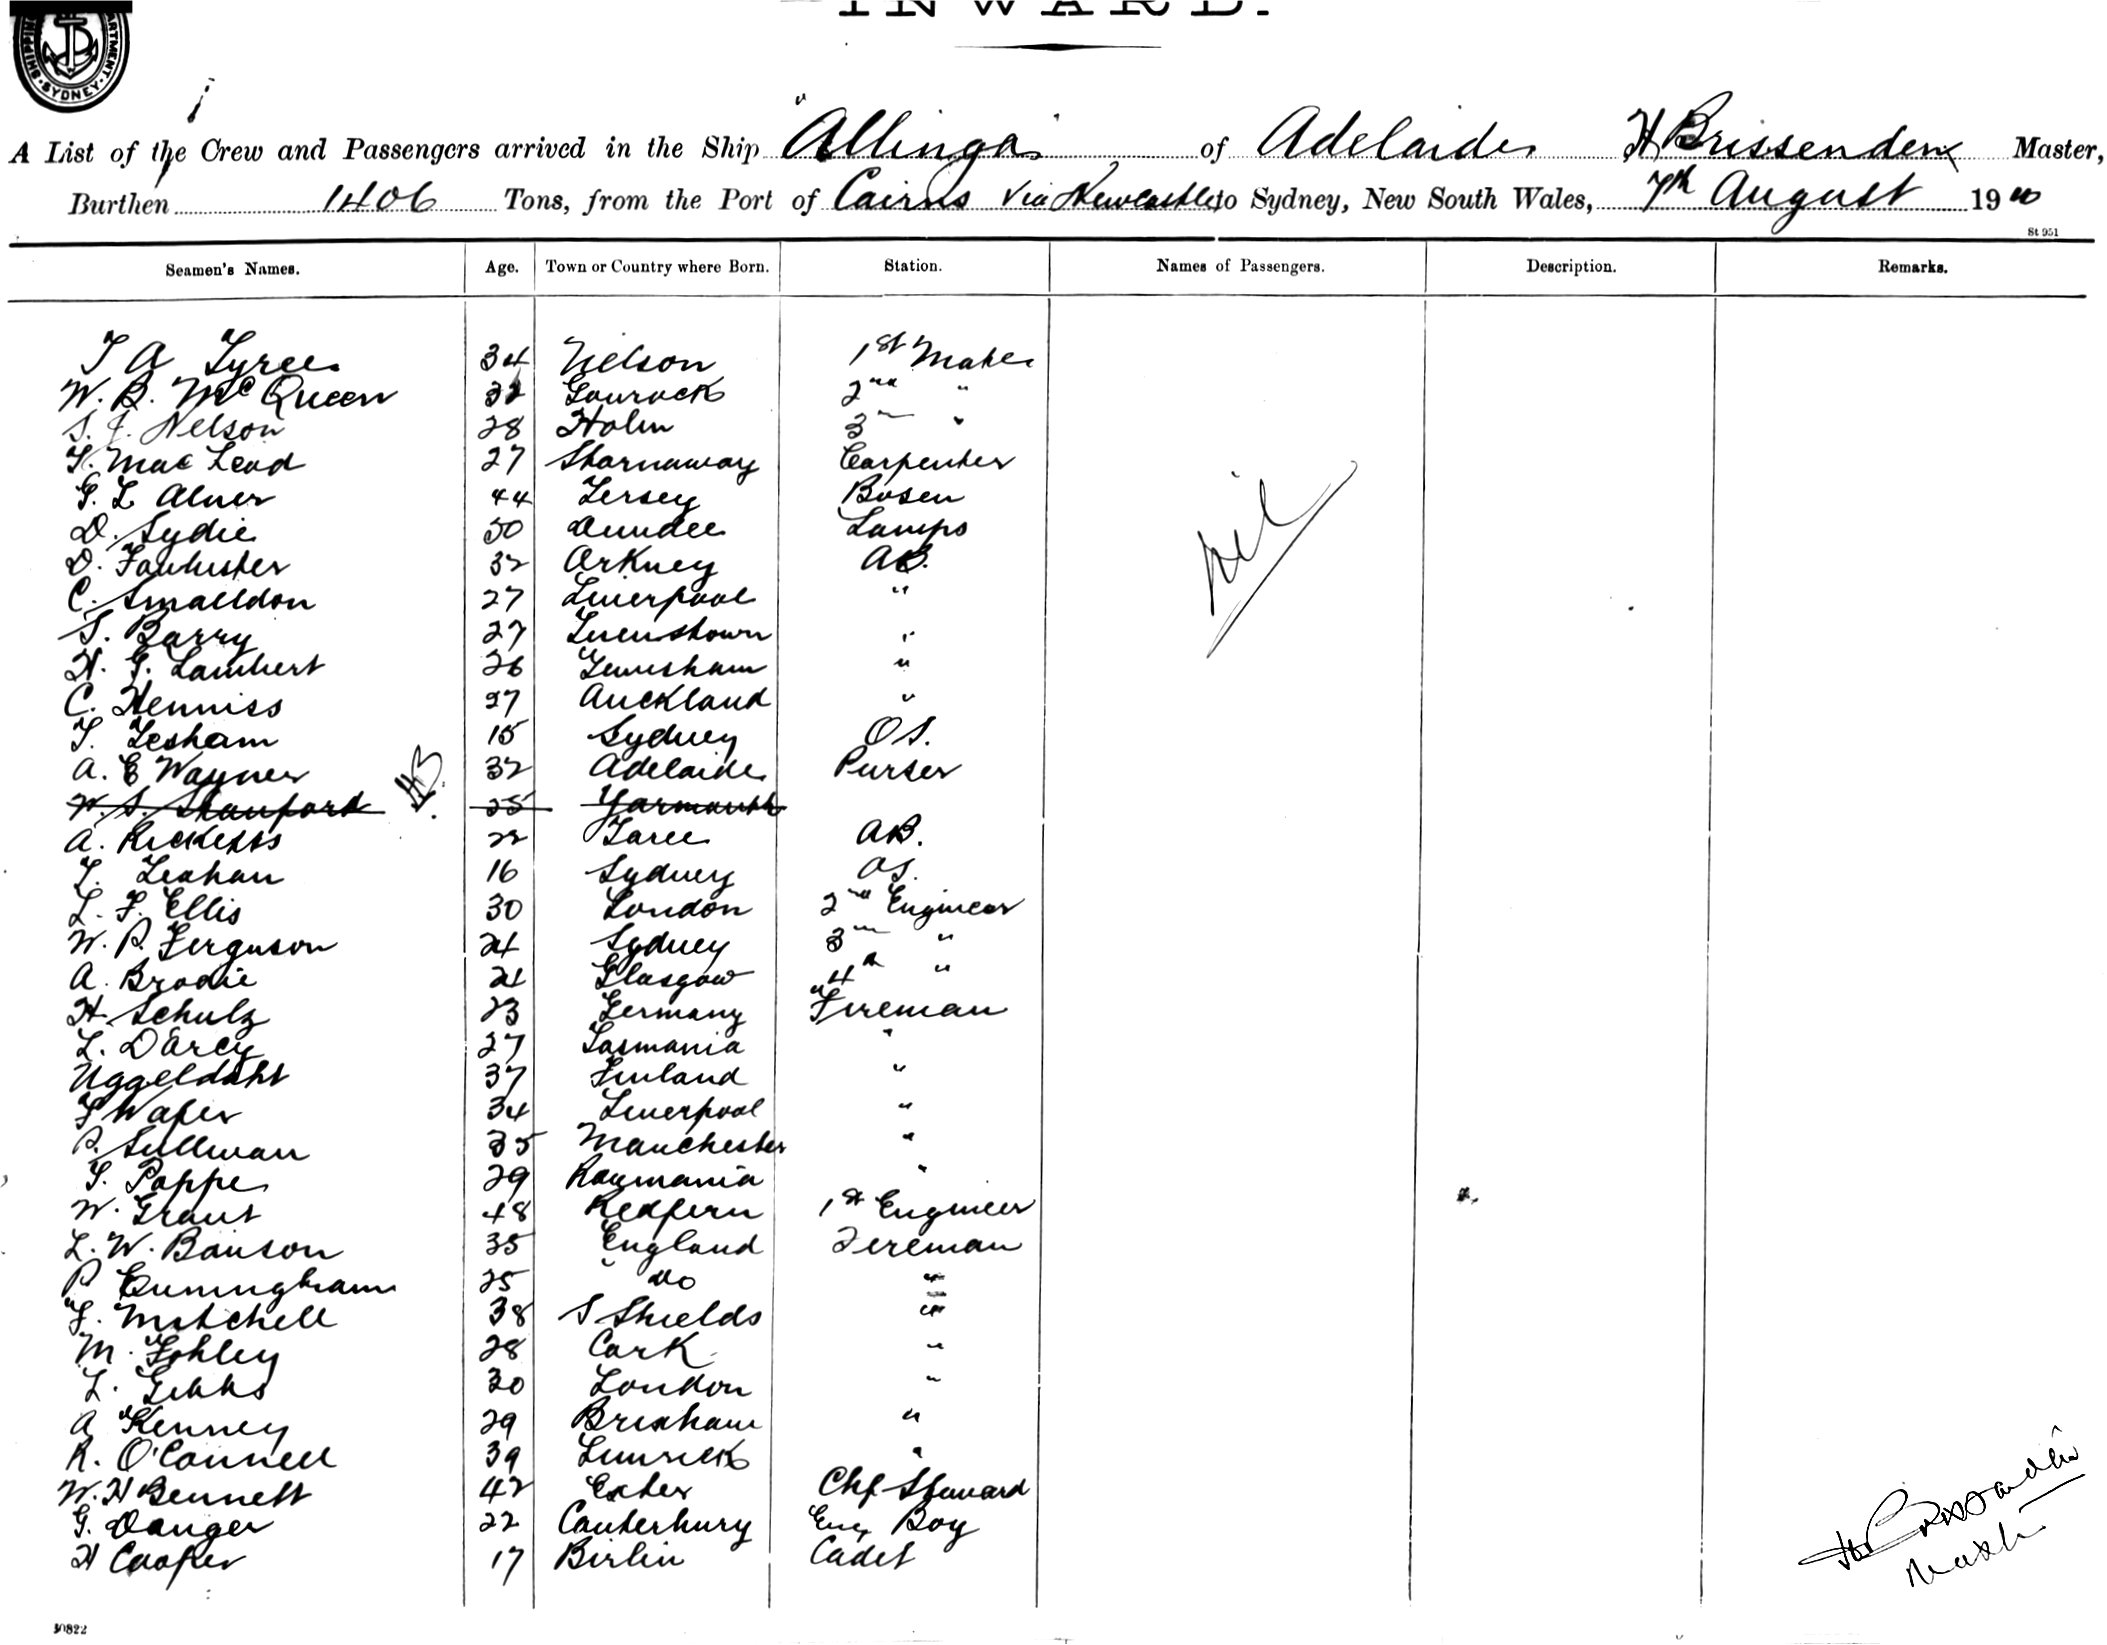 INWARD.
SHIPPING DEPARTMENT SYDNEY
A List of the Crew and Passengers arrived in the Ship "Allinga" of Adelaide H Brissenden Master,
Burthen 1406 Tons, from the Port of Cairns via Newcastle to Sydney, New South Wales, 7th August 19
St 951
Seamen's Names. Age. Town or Country where Born. Station. Names of Passengers. Description. Remarks.
T A Tyree 34 Nelson 1st Mate
W. B. McQueen 32 Gourock 2nd "
S. J. Nelson 28 Holm 3rd "
K. MacLeod 27 Stornaway Carpenter
G. L Alner 44 Jersey Bosen
D. Sydie 50 Dundee Lamps
D. Foubister 32 Orkney AB.
C. Smalldon 27 Liverpool "
S. Barry 27 Queenstown "
H. G. Lambert 26 Lewisham "
C. Henniss 27 Auckland "
T. Lesham 15 Sydney OS.
A. E Wagner 32 Adelaide Purser
W. S. Stanford HB. 25 Yarmouth
A. Ricketts 22 Taree AB.
T. Leahan 16 Sydney OS.
L. F. Ellis 30 London 2nd Engineer
W. P. Ferguson 24 Sydney 3rd "
A. Brodie 21 Glasgow 4th "
H. Schulz 23 Germany Fireman
L. D'Arcy 27 Tasmania "
Uggeldahl 37 Finland "
34 Liverpool "
P. Sullivan 35 Manchester "
T. Poppe 29 Roumania "
W. Grant 48 Redfern 1st Engineer
L. W. Bauson 35 England Fireman
P Cuningham 25 " Do "
F. Mitchell 38 S Shields "
M. Fohley 28 Cork "
L. Gibbs 30 London "
A Kenney 29 Brixham "
R. O'Connell 39 Limrick "
W. H Bennett 42 Exeter Chf Steward
G. Danger 22 Canterbury Eng Boy
H Cooper 17 Birlin Cadet
Nil
H Brissenden
Master
10822